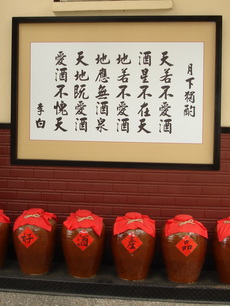 月下獨酌
天若不愛酒
酒星不在天
地若不愛酒
地應無酒泉
天地既愛酒
愛酒不愧天
李白
好
酒
産
品